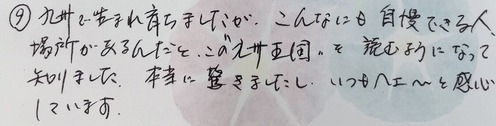 ⑨ 九州で生まれ育ちましたが、こんなにも自慢できる人、
場所があるんだと、この"九州王国"を読むようになって
知りました。本当に驚きましたし、いつもヘエ〜と感心
しています。